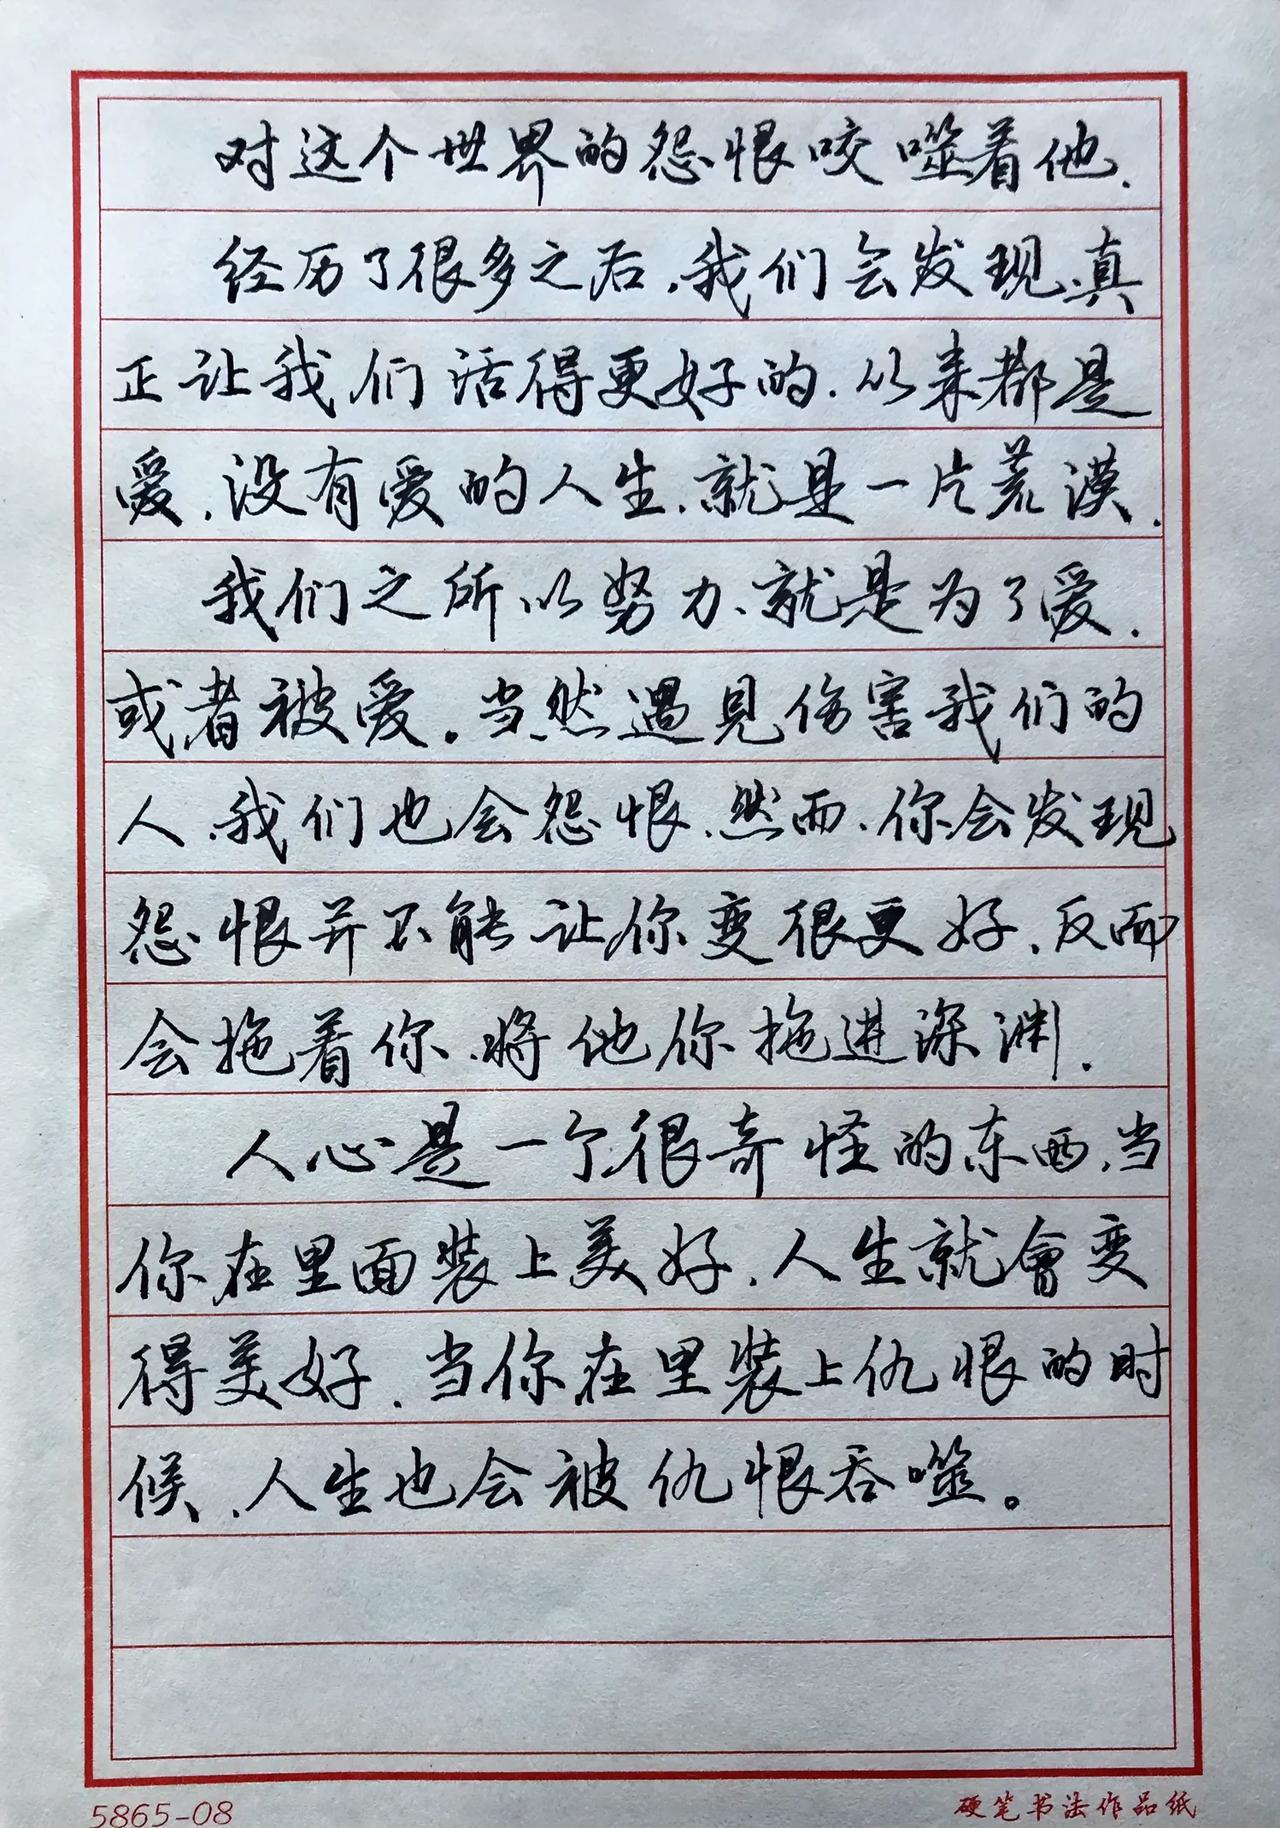 对这个世界的怨恨咬噬着他.
经历了很多之后,我们会发现、真
正让我们活得更好的.以来都是
爱.没有爱的人生.就是一片荒漠.
我们之所以努力、就是为了爱.
或者被爱。当然遇见伤害我们的
人、我们也会怨恨、然而、你会发现
怨恨并不能让你变很更好、反而
会拖着你、将他你拖进深渊.
人心是一个很奇怪的东西、当
你在里面装上美好、人生就會变
得美好、当你在里装上仇恨的时
候、人生也会被仇恨吞噬。
5865-08
硬笔书法作品纸